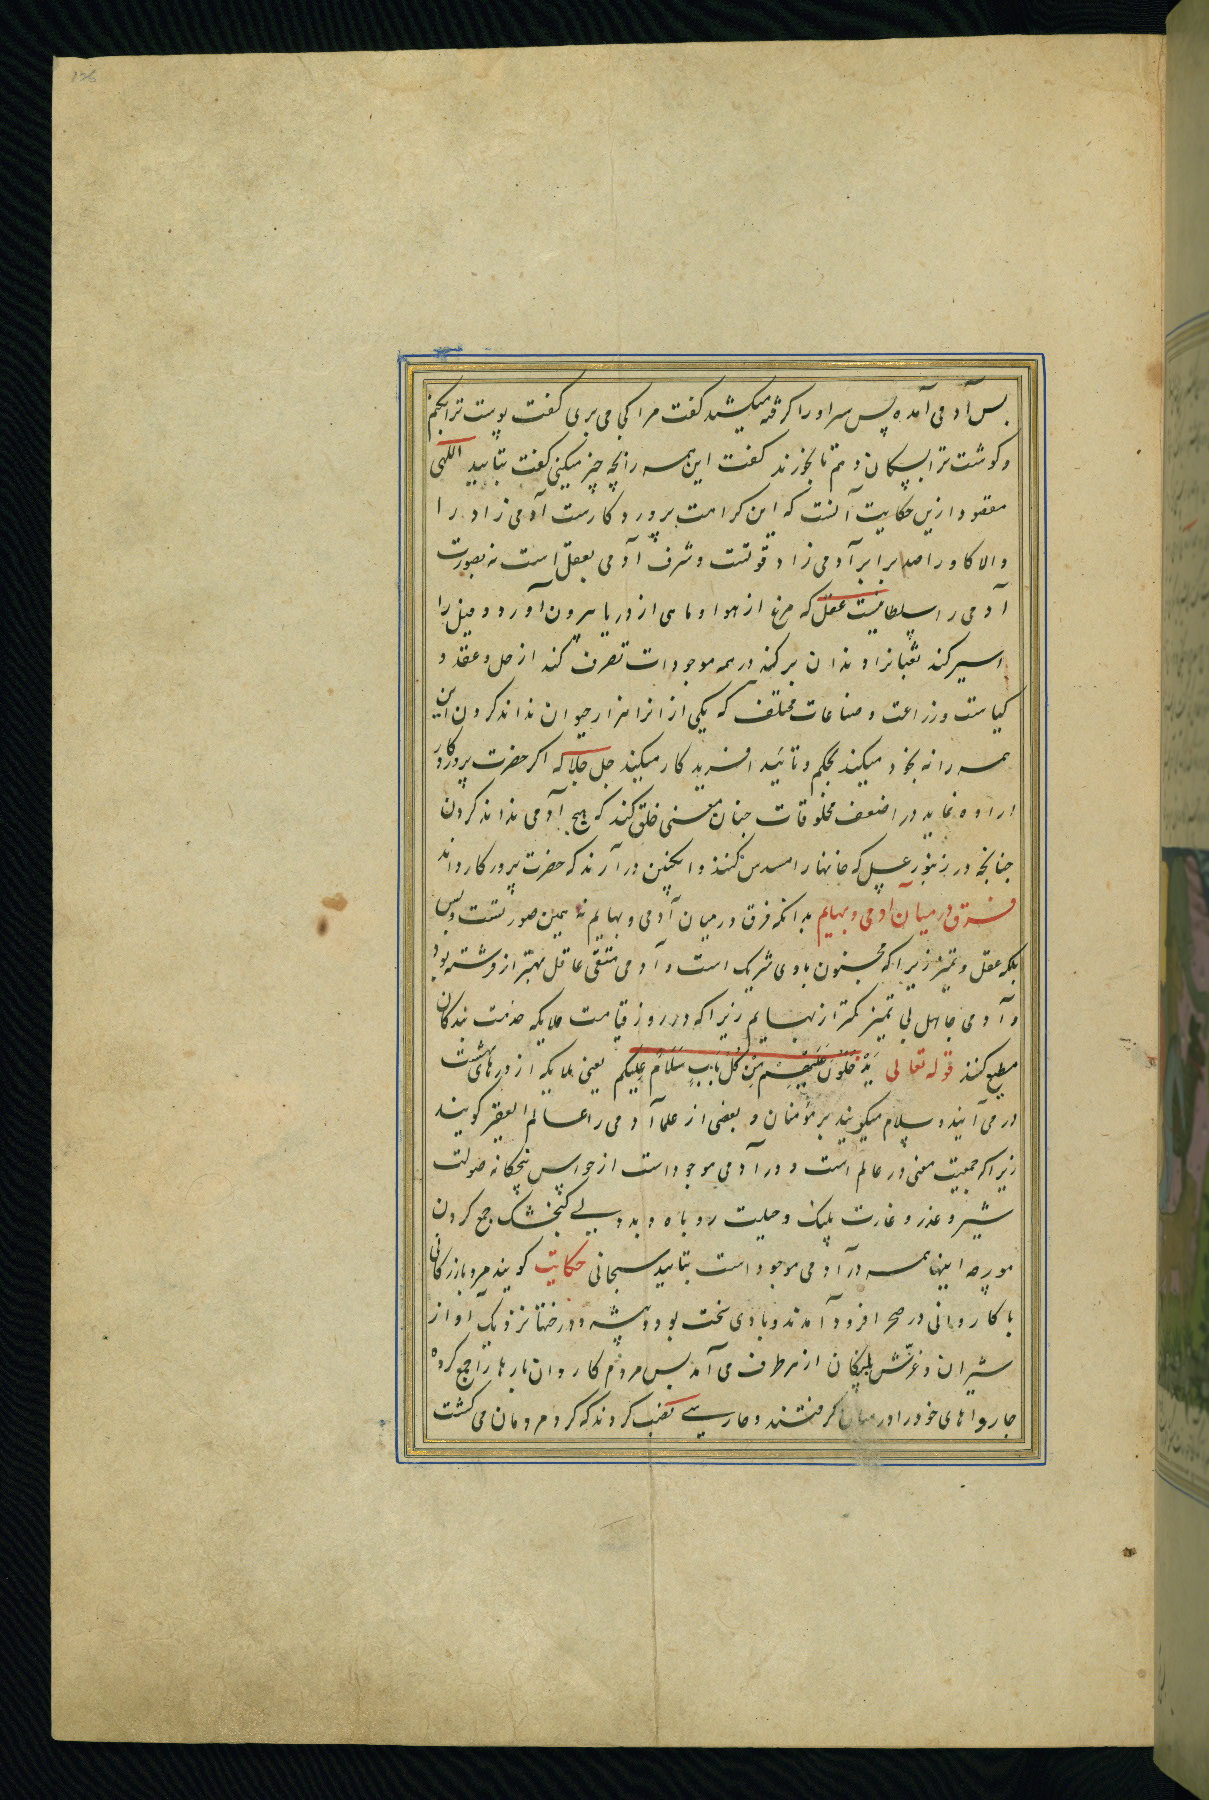 پس آدمی آمده پس سر او را گرفته میکشد گفت مرا کجا می بری گفت پوست ترا بکنم
و کوشت ترا بسکان دهم تا بخورند گفت این همه را بچه چیز میکنی گفت بتایید الهی
مقصود ازین حکایت آنست که این کرامت پروردکارست آدمی زاد را
والا کاو را صد برابر آدمی زاد قوتست و شرف آدمی بعقل است نه بصورت
آدمی را سلطانیست عقل که مرغ از هوا و ماهی از دریا بیرون آورد و فیل را
اسیر کند ثعبانرا دندان برکند در همه موجودات تصرف کند از حل و عقد و
کیاست و زراعت و صناعات مختلف که یکی از انرا هزار حیوان نداند کردن این
همه را نه بخود میکند بحکم و تائید افرید کار میکند جل جلاله که اکر حضرت پروردکار
اراده نماید در اضعف مخلوقات جنان معنی خلق کند که هیچ آدمی نداند کردن
جنانجه در زنبور عسل که خانها را مسدس کنند و انکبین در آرند که حضرت پروردکار داند
فرق درمیان آدمی و بهایم بدانکه فرق درمیان آدمی و بهایم نه بهمین صورتست و بس
بلکه عقل و تمیز زیرا که مجنون با وی شریک است و آدمی متقی عاقل بهتر از فرشته بود
و آدمی جاهل بی تمیز کمتر از بهایم زیرا که در روز قیامت ملایکه خدمت بندکان
مطیع کنند قوله تعالی یَدْخُلُونَ عَلَیْهِم مِّن کُلِّ بَابٍ سَلَامٌ عَلَیْکُم یعنی ملایکه از درهای بهشت
در می آیند و سلام میکویند بر مؤمنان و بعضی از علما آدمی را عالم الصغیر کویند
زیرا که جمعیت معنی در عالم است و در آدمی موجود است از حواس پنجکانه صولت
شیر و غدر و غارت پلنک و حیلت روباه و بد دلی کنجشک جمع کردن
مورجه اینهمه در آدمی موجود است بتایید سبحانی حکایت کویند مرد بازرکانی
با کاروانی در صحرا فرود آمدند و بادی سخت بود و بیشه و درختان نزدیک آواز
شیران و غرّش پلنکان از هر طرف می آمد پس مردم کاروان بارها را جمع کرده
جارواهای خود را درمیان کرفتند و حارسی نصب کردند که کرد مردمان می کشت